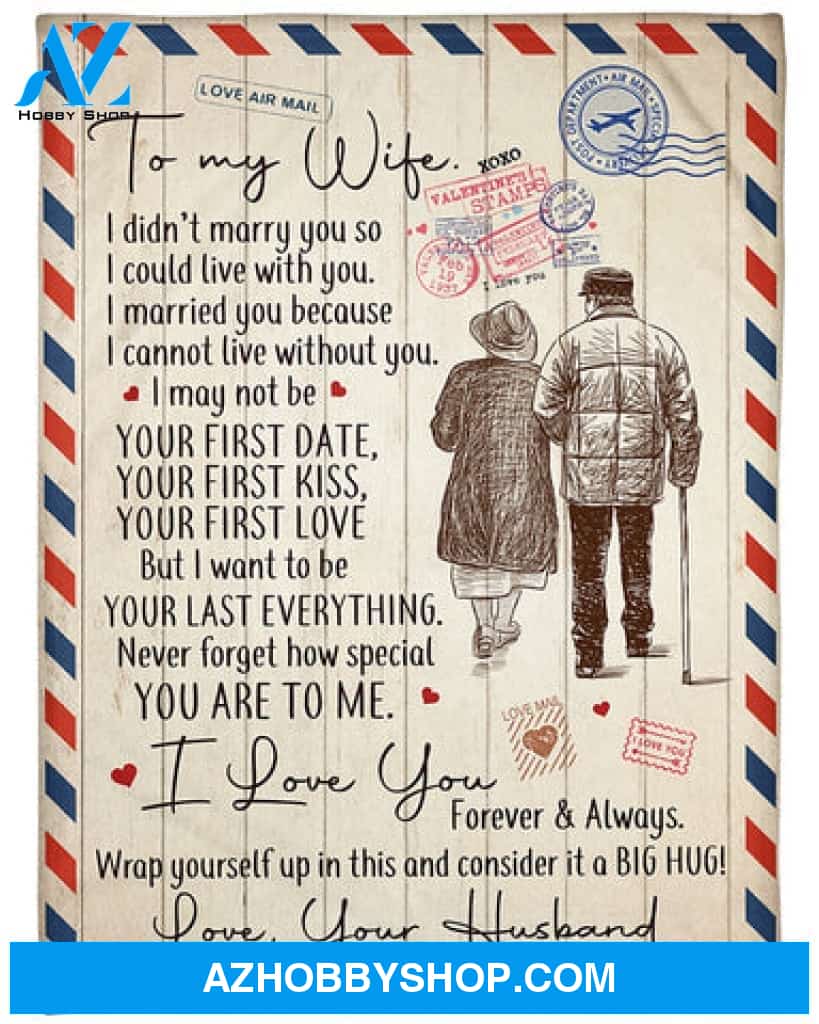 AZ
HOBBY SHOP
LOVE AIR MAIL
POST DEPARTMENT • AIR MAIL • SPECIAL
To my Wife.
XOXO
VALENTINE'S
STAMPS
Feb
19
1937
I love you
I didn't marry you so
I could live with you.
I married you because
I cannot live without you.
I may not be
YOUR FIRST DATE,
YOUR FIRST KISS,
YOUR FIRST LOVE
But I want to be
YOUR LAST EVERYTHING.
Never forget how special
YOU ARE TO ME.
LOVE MAIL
I LOVE YOU
I Love You
Forever & Always.
Wrap yourself up in this and consider it a BIG HUG!
Love, Your Husband
AZHOBBYSHOP.COM